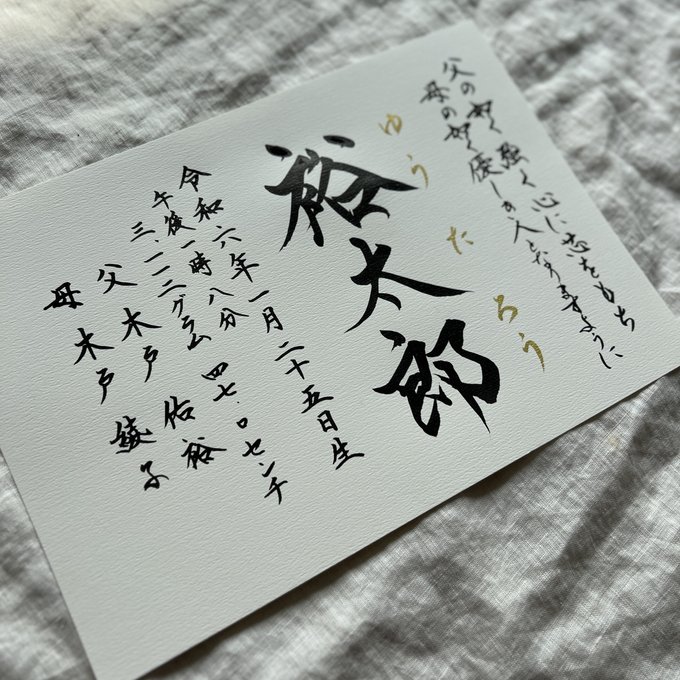 父の如く強く心に芯をもち
母の如く優しい人となりますように
ゆうたろう
裕太郎
令和六年一月二十五日生
午後一時八分 四七.〇センチ
三、一一二グラム
父 木戸 佑裕
母 木戸 綾子